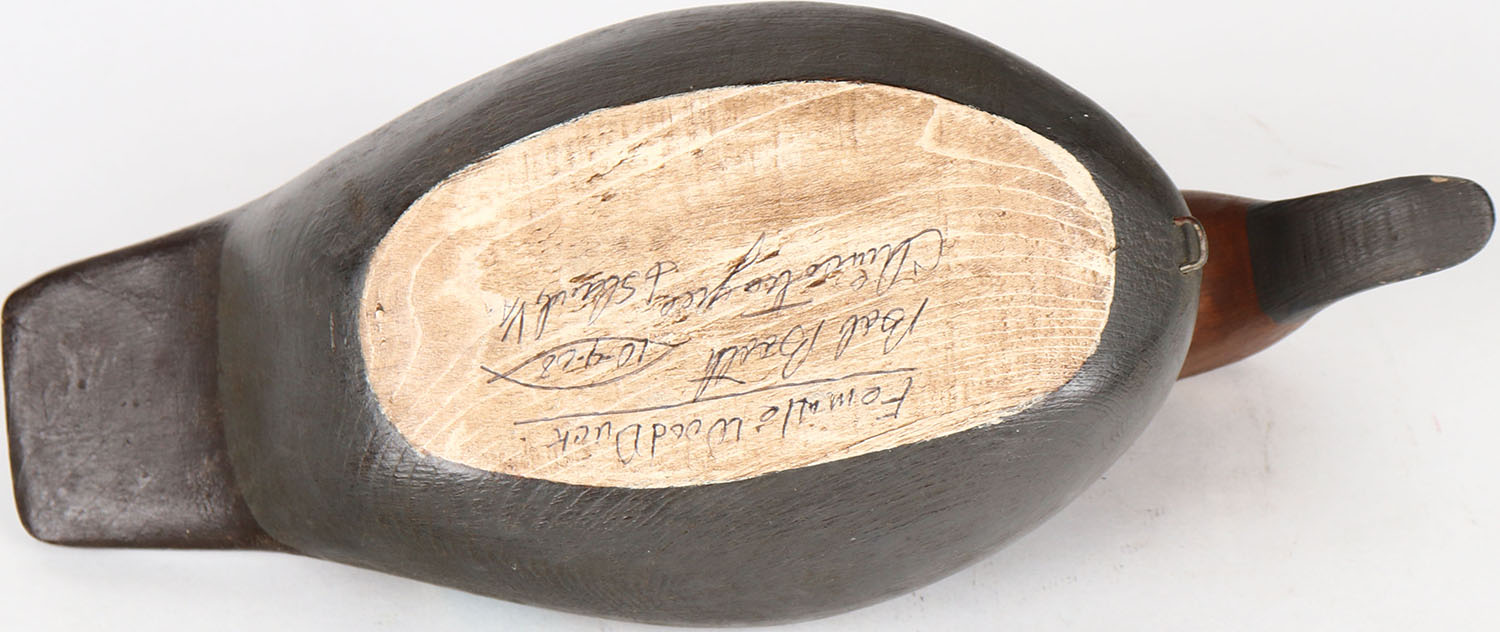 Female Wood Duck
Bob Booth 10-9-28
Chincoteague
Island Va